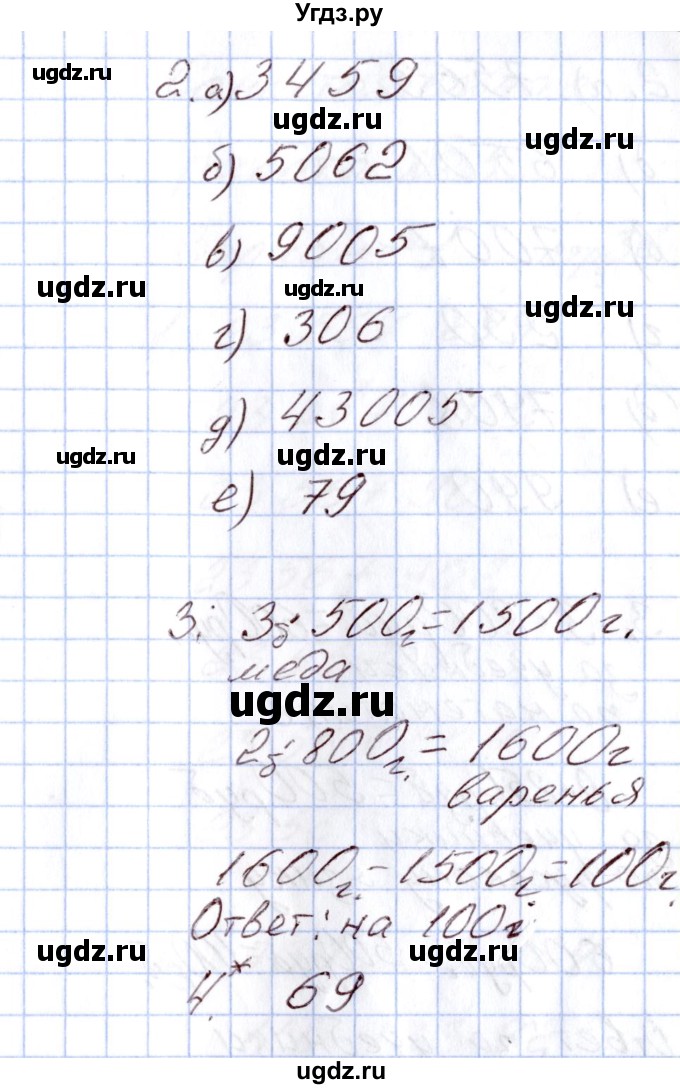 Угдз.ру
ugdz.ru
2. а) 3459
ugdz.ru
ugdz.ru
б) 5062
в) 9005
ugdz.ru
ugdz.ru
ugdz.ru
г) 306
д) 43005
ugdz.ru
ugdz.ru
е) 79
3. 3б · 500г = 1500г.
меда
ugdz.ru
2б · 800г. = 1600г
варенья
1600г. - 1500г = 100г.
Ответ: на 100г
ugdz.ru
ugdz.ru
4.* 69
ugdz.ru